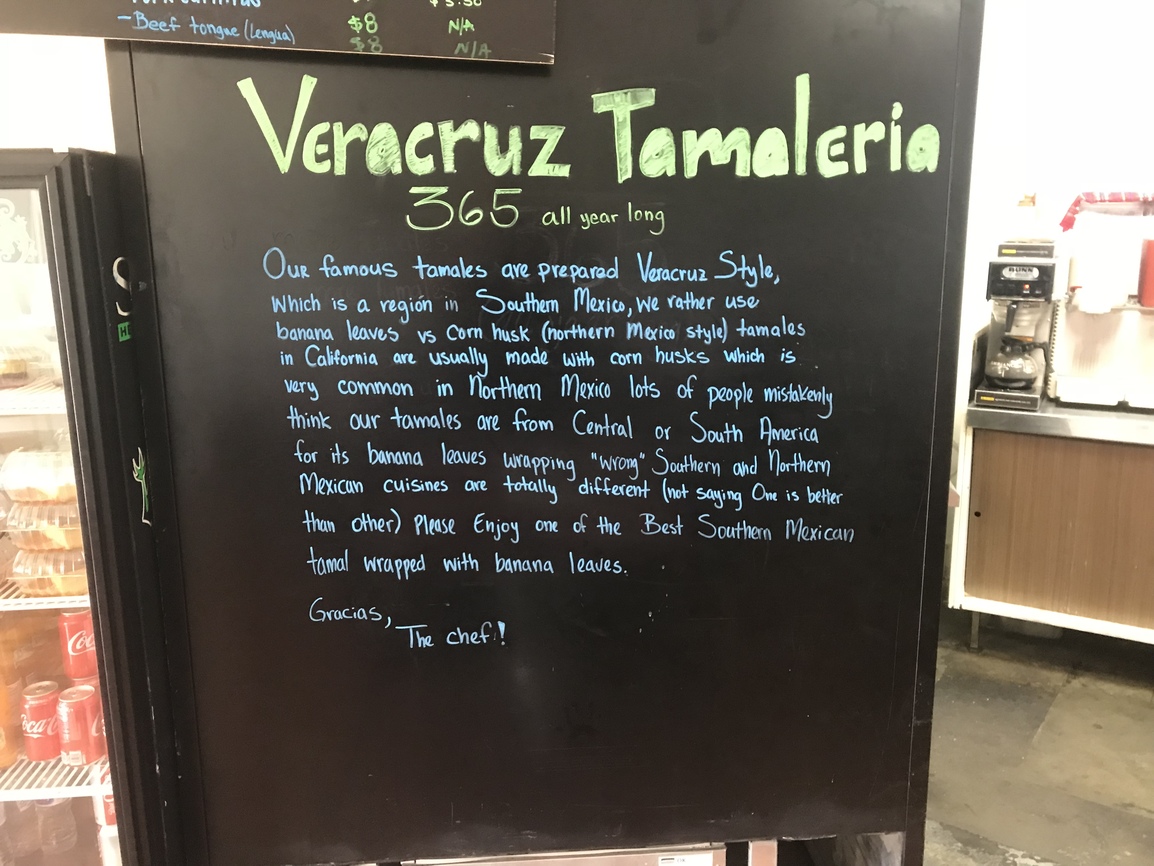 -Beef tongue (Lengua) $8 N/A
$8 N/A
Veracruz Tamaleria
365 all year long
Our famous tamales are prepared Veracruz Style,
Which is a región in Southern Mexico, we rather use
banana leaves vs corn husk (northern Mexico style) tamales
in California are usually made with corn husks which is
very common in Northern Mexico lots of people mistakenly
think our tamales are from Central or South America
for its banana leaves wrapping "wrong" Southern and Northern
Mexican cuisines are totally different (not saying One is better
than other) Please Enjoy one of the Best Southern Mexican
tamal wrapped with banana leaves.
Gracias,
The chef!
BUNN
Coca-Cola